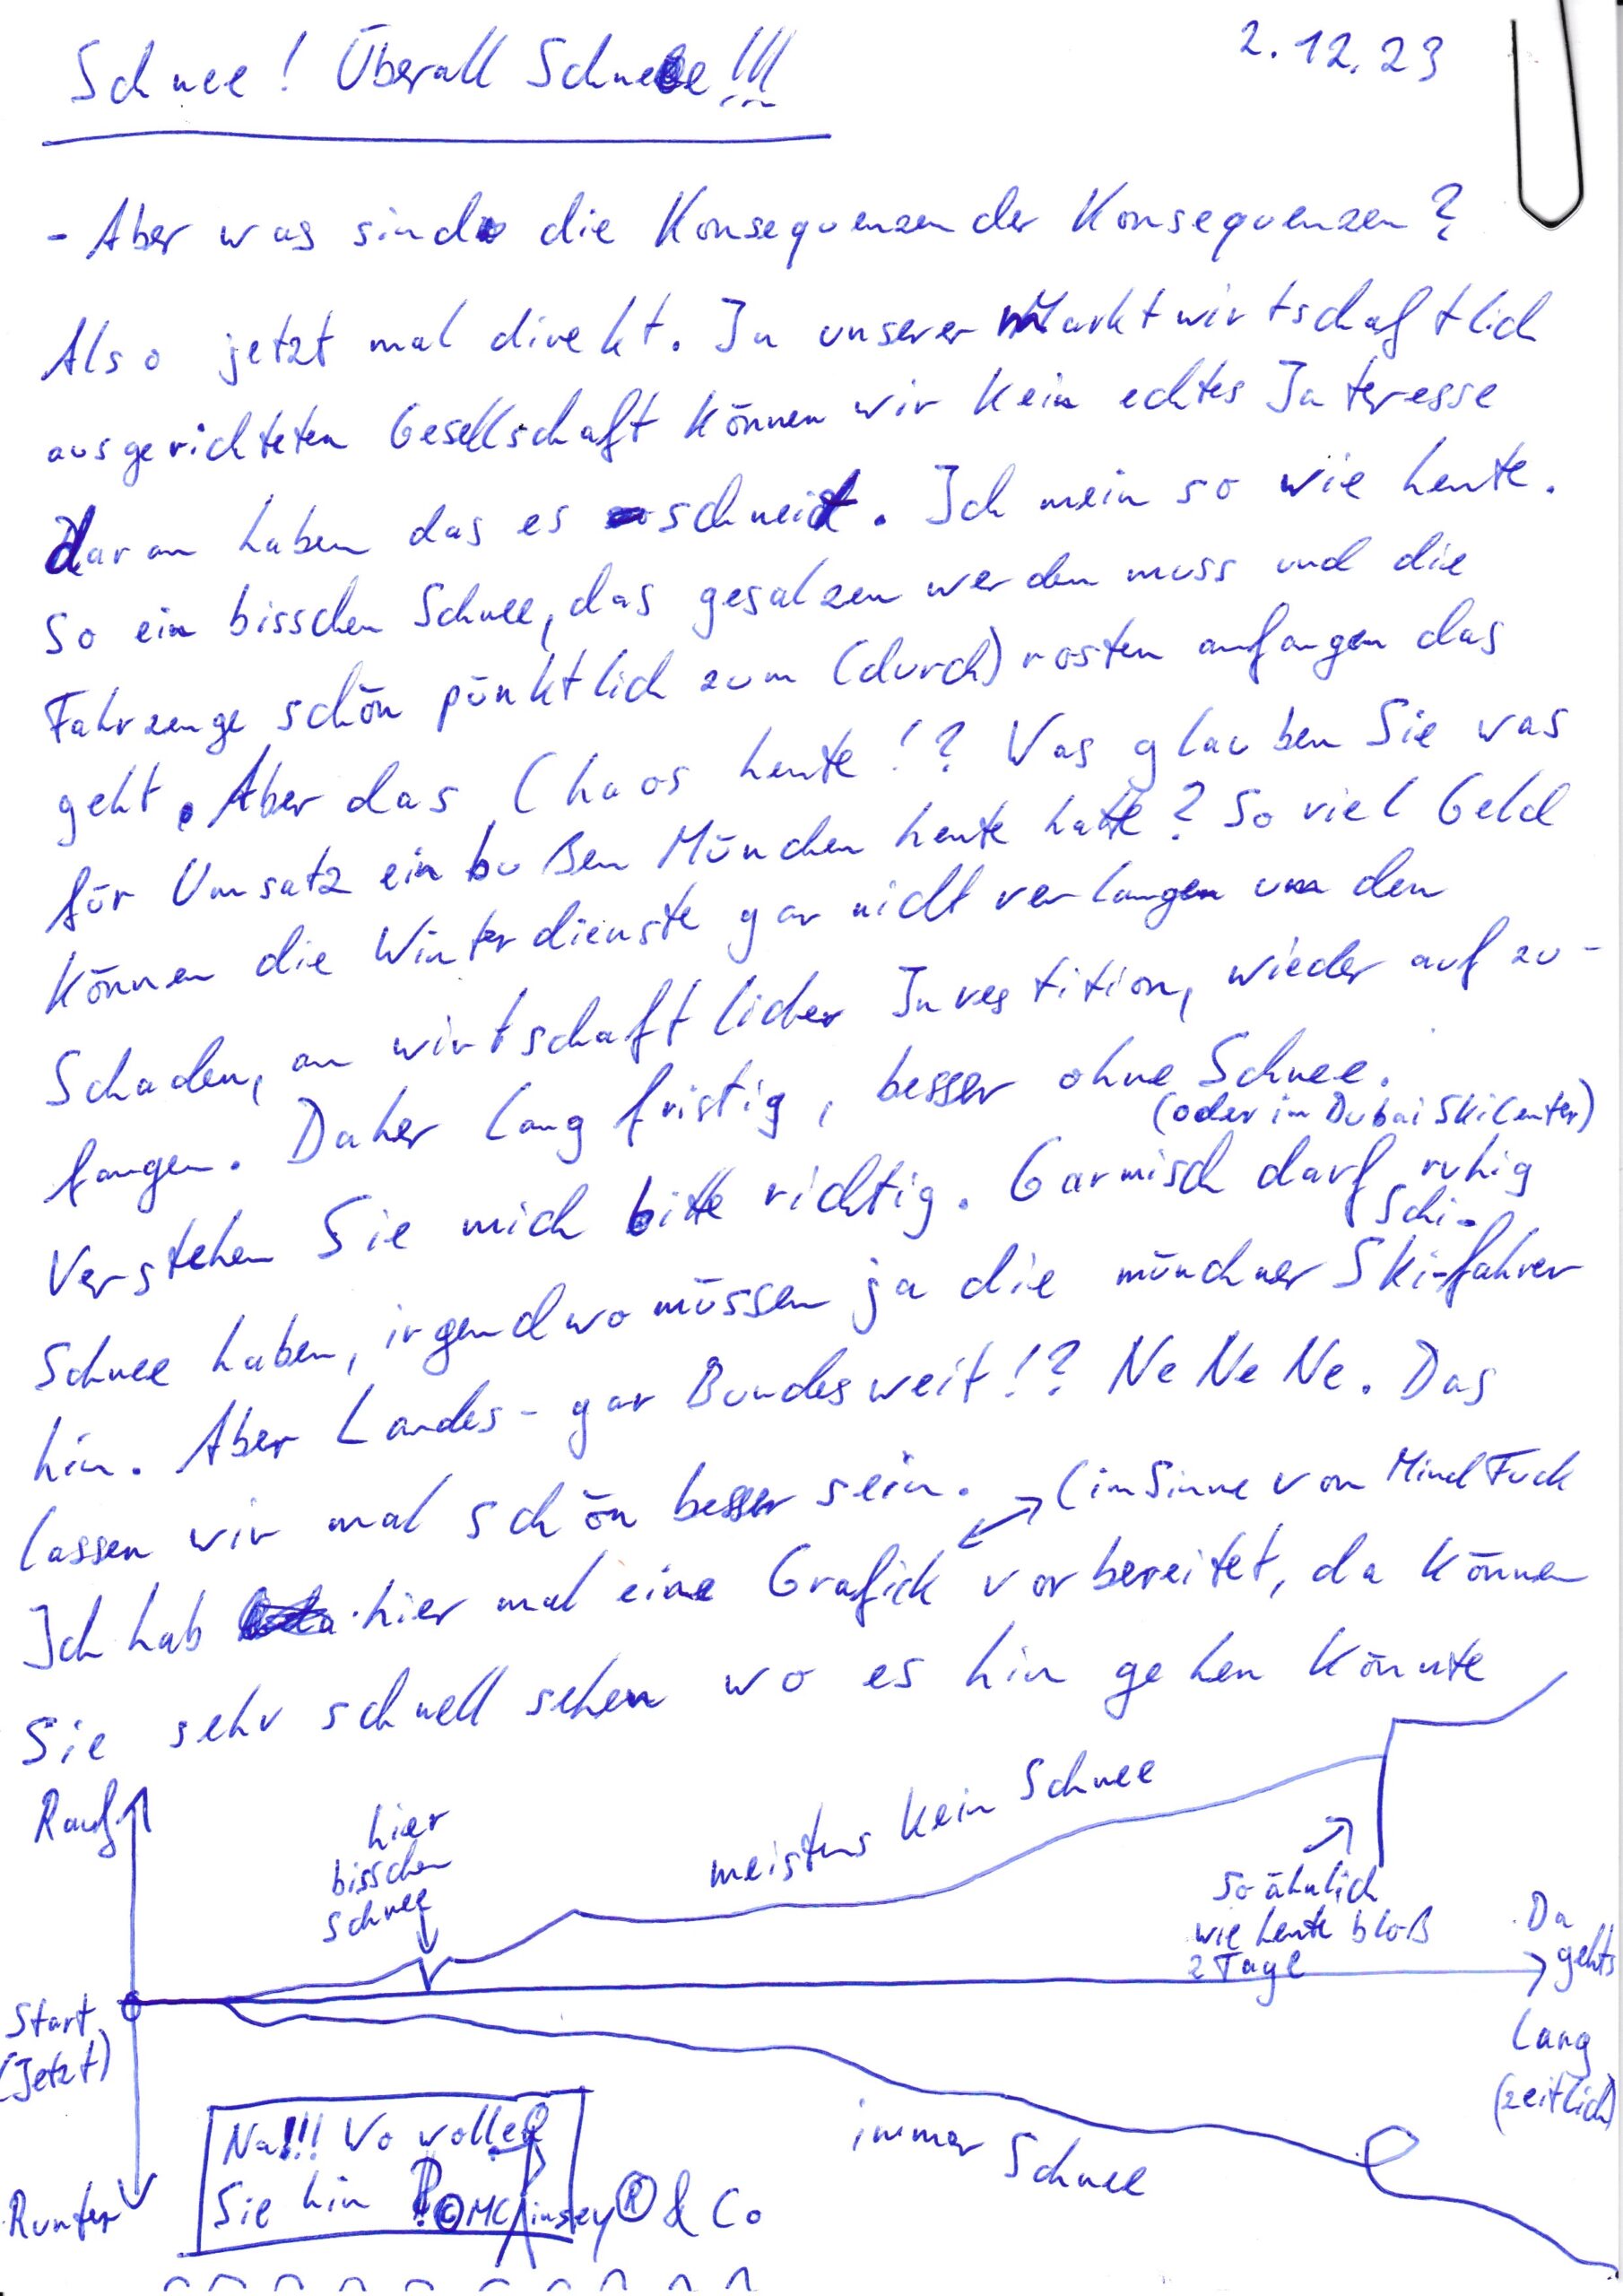 2.12.23
Schnee! Überall Schnee!!!
- Aber was sind die Konsequenzen der Konsequenzen?
Also jetzt mal direkt. In unserer Marktwirtschaftlich
ausgerichteten Gesellschaft können wir kein echtes Interesse
daran haben das es schneit. Ich mein so wie heute.
So ein bisschen Schnee, das gesalzen werden muss und die
Fahrzeuge schön pünktlich zum (durch)rosten anfangen das
geht. Aber das Chaos heute!? Was glauben Sie was
für Umsatzeinbußen München heute hatte? So viel Geld
können die Winterdienste gar nicht verlangen um den
Schaden, an wirtschaftlicher Investition, wieder aufzu-
fangen. Daher langfristig, besser ohne Schnee.
(oder im Dubai SkiCenter)
Verstehen Sie mich bitte richtig. Garmisch darf ruhig
Schi-
Schnee haben, irgendwo müssen ja die münchner Ski-fahrer
hin. Aber Landes- gar Bundesweit!? Ne Ne Ne. Das
lassen wir mal schön besser sein. (im Sinne von MindFuck
Ich hab hier mal eine Grafick vorbereitet, da können
Sie sehr schnell sehen wo es hin gehen könnte
Rauf
hier
bisschen
schnee
meistens kein Schnee
so ähnlich
wie heute bloß
2 Tage
Da
gehts
lang
(zeitlich)
Start
(Jetzt)
immer Schnee
Runter
Na!!! Wo wollen
Sie hin
©MCKinsey® & Co